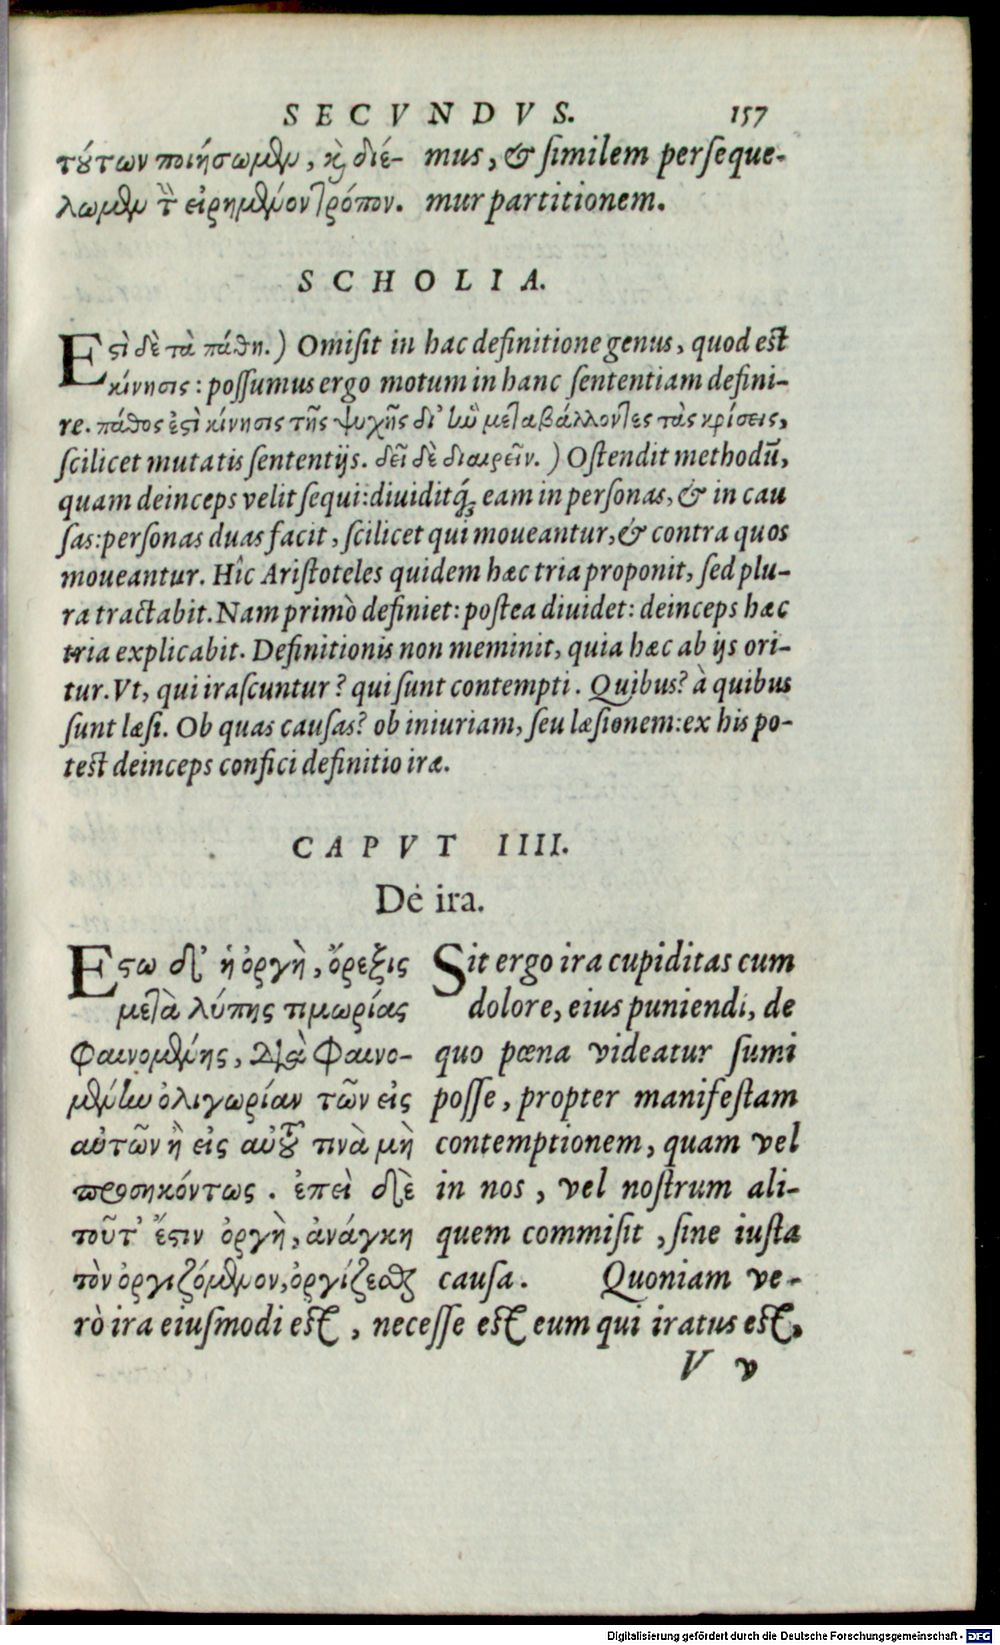 SECVNDVS. 157
τούτων ποιήσωμεν, καὶ διέ-
λωμεν τὸν εἰρημένον τρόπον.
mus, & ſimilem perſeque-
mur partitionem.
SCHOLIA.
Εςὶ δὲ τὰ πάθη.) Omiſit in hac definitione genus, quod eſt
κίνησις: poſſumus ergo motum in hanc ſententiam defini-
re. πάθος ἐςὶ κίνησις τῆς ψυχῆς δι' ἣν μεταβάλλοντες τὰς κρίσεις,
ſcilicet mutatis ſententijs. δεῖ δὲ διαιρεῖν.) Oſtendit methodũ,
quam deinceps velit ſequi: diuiditq́; eam in perſonas, & in cau
ſas: perſonas duas facit, ſcilicet qui moueantur, & contra quos
moueantur. Hîc Ariſtoteles quidem hæc tria proponit, ſed plu-
ra tractabit. Nam primò definiet: poſtea diuidet: deinceps hæc
tria explicabit. Definitionis non meminit, quia hæc ab ijs ori-
tur. Vt, qui iraſcuntur? qui ſunt contempti. Quibus? à quibus
ſunt læſi. Ob quas cauſas? ob iniuriam, ſeu læſionem: ex his po-
teſt deinceps confici definitio iræ.
CAPVT IIII.
De ira.
Εςω δὴ ἡ ὀργὴ, ὄρεξις
μετὰ λύπης τιμωρίας
φαινομένης, διὰ φαινο-
μένην ὀλιγωρίαν τῶν εἰς
αὐτῶν ἢ εἰς αὐτοῦ τινὰ μὴ
προσηκόντως. ἐπεὶ δὲ
τοῦτ' ἔςιν ὀργὴ, ἀνάγκη
τὸν ὀργιζόμενον, ὀργίζεσθαι
Sit ergo ira cupiditas cum
dolore, eius puniendi, de
quo pœna videatur ſumi
poſſe, propter manifeſtam
contemptionem, quam vel
in nos, vel noſtrum ali-
quem commiſit, ſine iuſta
cauſa. Quoniam ve-
rò ira eiuſmodi eſt, neceſſe eſt eum qui iratus eſt,
V v
Digitalisierung gefördert durch die Deutsche Forschungsgemeinschaft - DFG